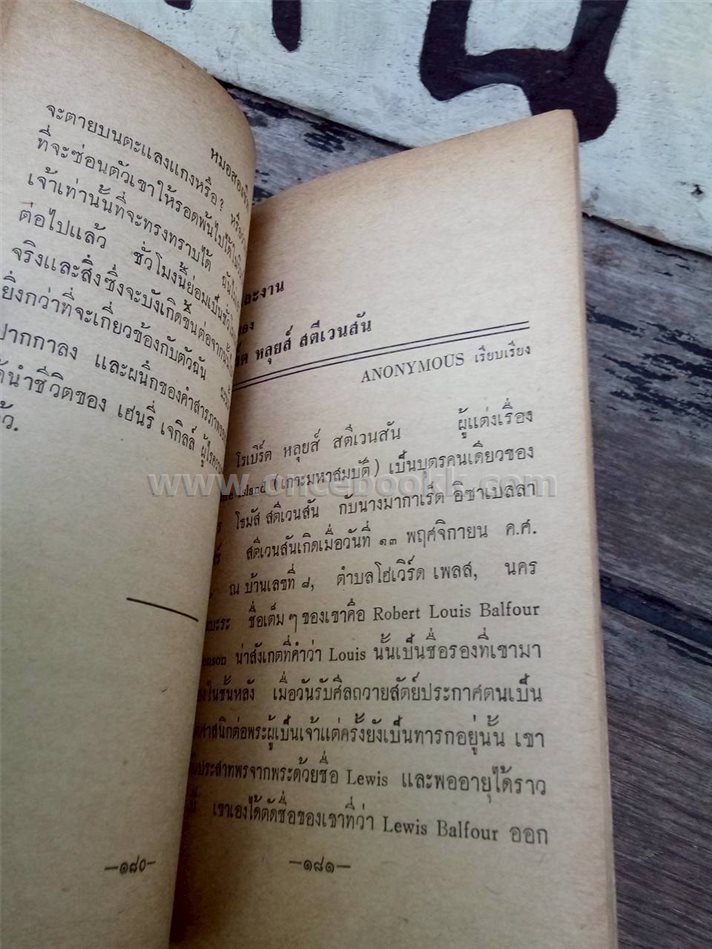 หมอสอง
จะตายบนตะแลงแกงหรือ? หรือ
ที่จะซ่อนตัวเขาให้รอดพ้นไปได้
เจ้าเท่านั้นที่จะทรงทราบได้
ต่อไปแล้ว ชั่วโมงนี้ย่อมเป็น
จริงและสิ่งซึ่งจะบังเกิดขึ้นต่อจาก
ยิ่งกว่าที่จะเกี่ยวข้องกับตัวฉัน
ปากกาลง และผนึกของคำสารภาพ
นำชีวิตของ เฮนรี่ เจกิลล์ ผู้
—๑๘๐—
ละงาน
อง
หลุยส์ สตีเวนสัน
ANONYMOUS เรียบเรียง
โรเบิร์ต หลุยส์ สตีเวนสัน ผู้แต่งเรื่อง
Island (เกาะมหาสมบัติ) เป็นบุตรคนเดียวของ
โธมัส สตีเวนสัน กับนางมากาเร็ต อิซาเบลลา
สตีเวนสันเกิดเมื่อวันที่ ๑๓ พฤศจิกายน ค.ศ.
ณ บ้านเลขที่ ๘, ตำบลโฮเวิร์ด เพลส, นคร
ชื่อเต็มๆ ของเขาคือ Robert Louis Balfour
น่าสังเกตที่คำว่า Louis นั้นเป็นชื่อรองที่เขามา
ในชั้นหลัง เมื่อวันรับศีลถวายสัตย์ประกาศตนเป็น
ศาสนิกต่อพระผู้เป็นเจ้าแต่ครั้งยังเป็นทารกอยู่นั้น เขา
ประสาทพรจากพระด้วยชื่อ Lewis และพออายุได้ราว
เขาเองได้ตัดชื่อของเขาที่ว่า Lewis Balfour ออก
—๑๘๑—